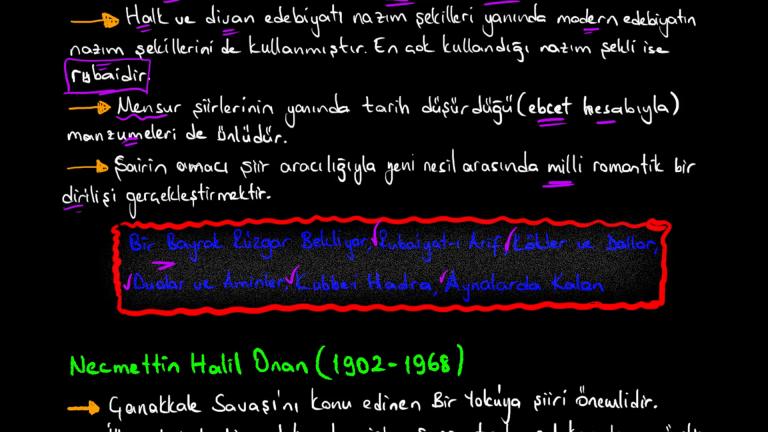 Halk ve divan edebiyatı nazım şekilleri yanında modern edebiyatın
nazım şekillerini de kullanmıştır. En çok kullandığı nazım şekli ise
rubaidir.
Mensur şiirlerinin yanında tarih düşürdüğü (ebcet hesabıyla)
manzumeleri de ünlüdür.
Şairin amacı şiir aracılığıyla yeni nesil arasında milli romantik bir
dirilişi gerçekleştirmektir.
Bir Bayrak Rüzgar Bekliyor, Rubaiyat-ı Arif, Kökler ve Dallar,
Dualar ve Aminler, Kubbei Hadra, Aynalarda Kalan
Necmettin Halil Onan (1902-1968)
Çanakkale Savaşı'nı konu edinen Bir Yolcuya şiiri önemlidir.